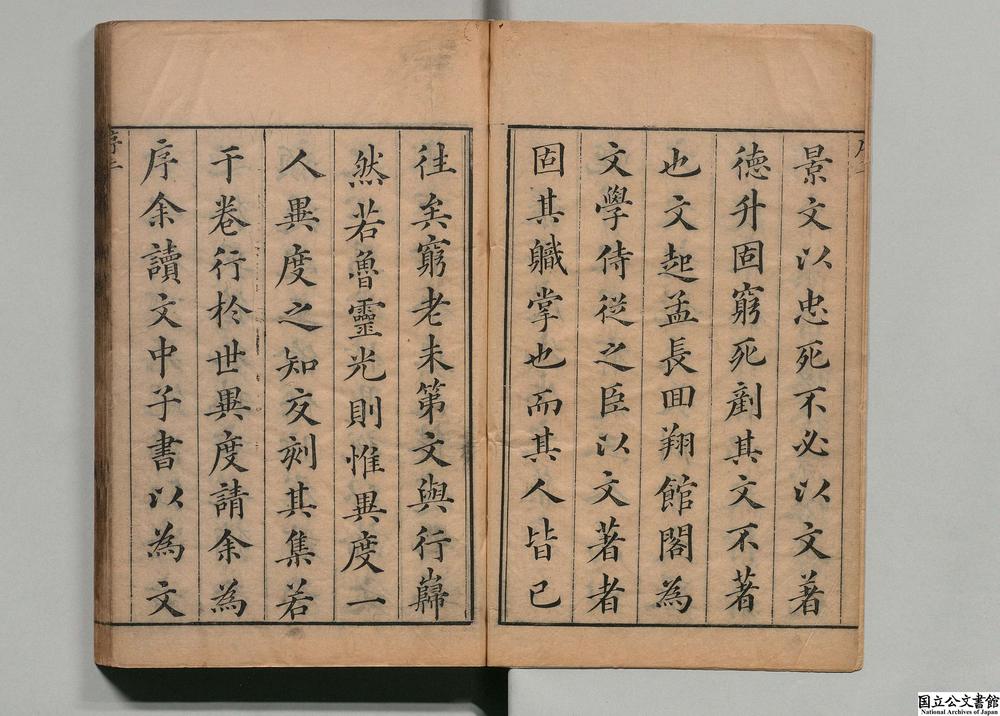 景文以忠死不必以文著
德升固窮死劀其文不著
也文起孟長回翔館閣為
文學侍從之臣以文著者
固其職掌也而其人皆已
往矣窮老未第文與行巋
然若魯靈光則惟異度一
人異度之知交刻其集若
干卷行於世異度請余為
序余讀文中子書以為文
序二
国立公文書館
National Archives of Japan